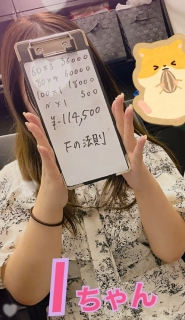 60分 36000
70分 60000
100分 18000
NN 1 500
¥-114,500
Fの法則
Iちゃん